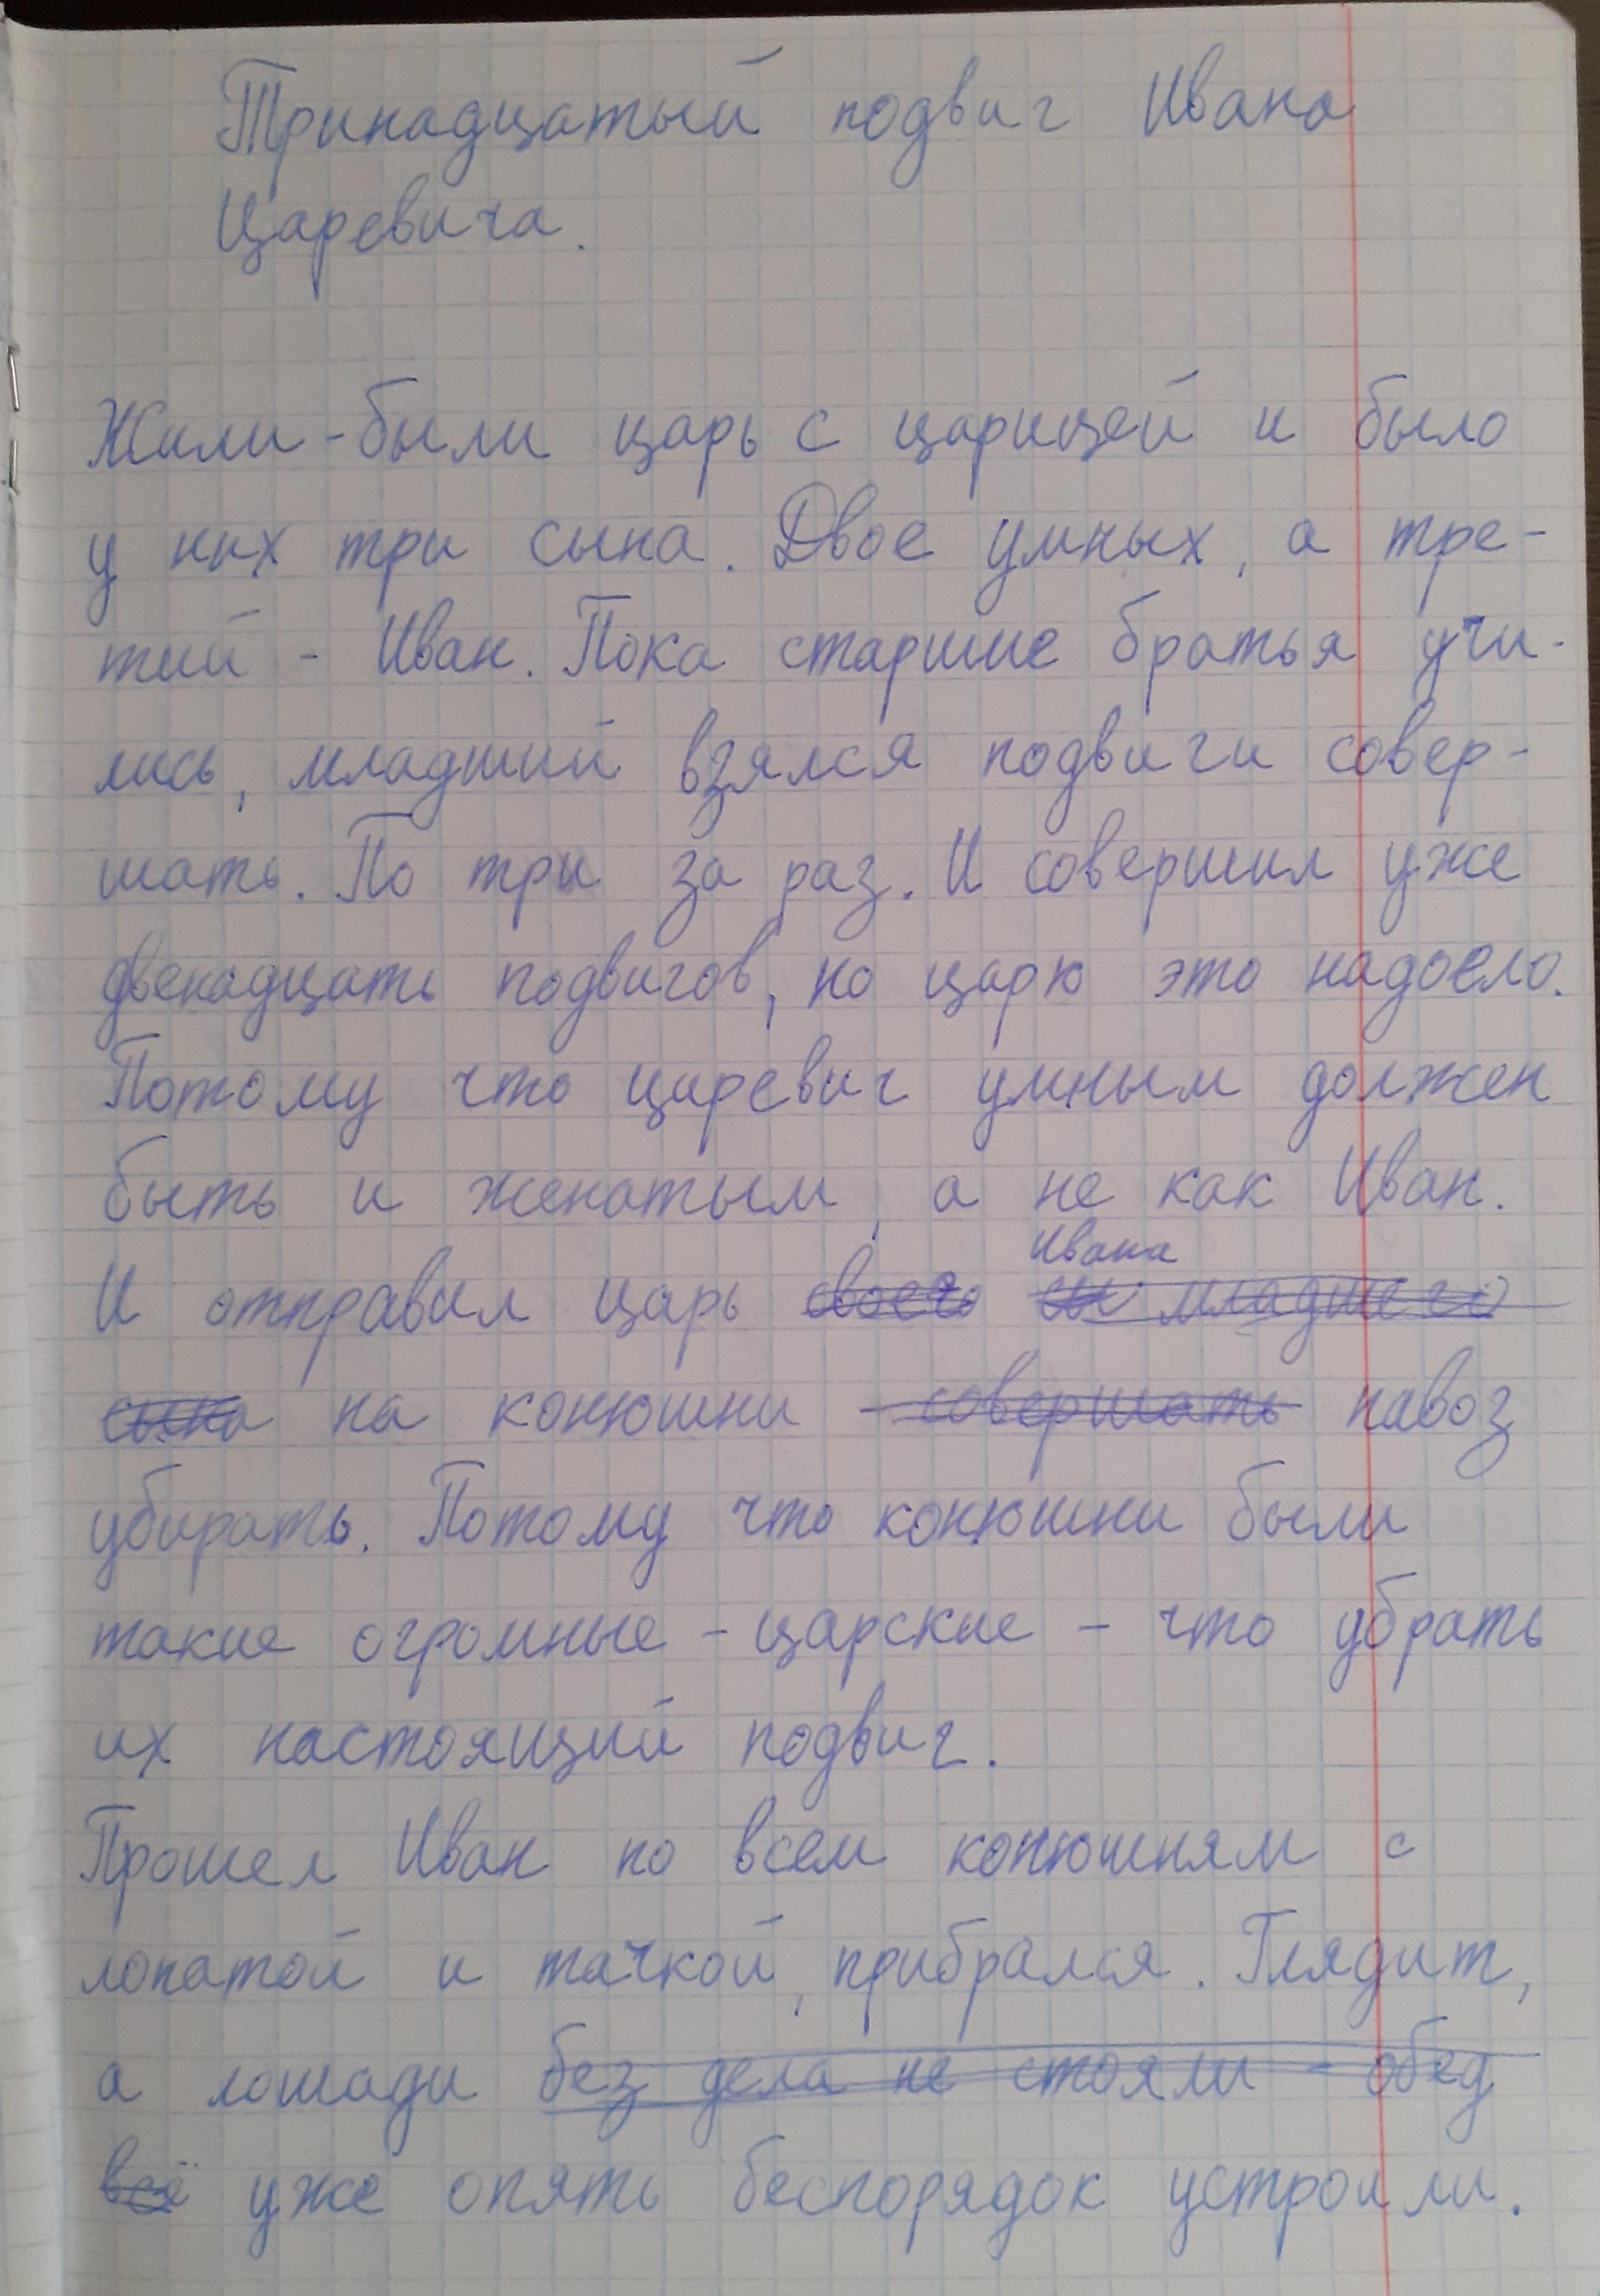 Тринадцатый подвиг Ивана
Царевича.
Жили-были царь с царицей и было
у них три сына. Двое умных, а тре-
тий - Иван. Пока старшие братья учи-
лись, младший взялся подвиги совер-
шать. По три за раз. И совершил уже
двенадцать подвигов, но царю это надоело.
Потому что царевич умным должен
быть и женатым, а не как Иван.
Ивана
И отправил царь своего сы младшего
сына на конюшни - совершать навоз
убирать. Потому что конюшни были
такие огромные - царские - что убрать
их настоящий подвиг.
Прошел Иван по всем конюшням с
лопатой и тачкой, прибрался. Глядит,
а лошади без дела не стояли - обед
всё уже опять беспорядок устроили.